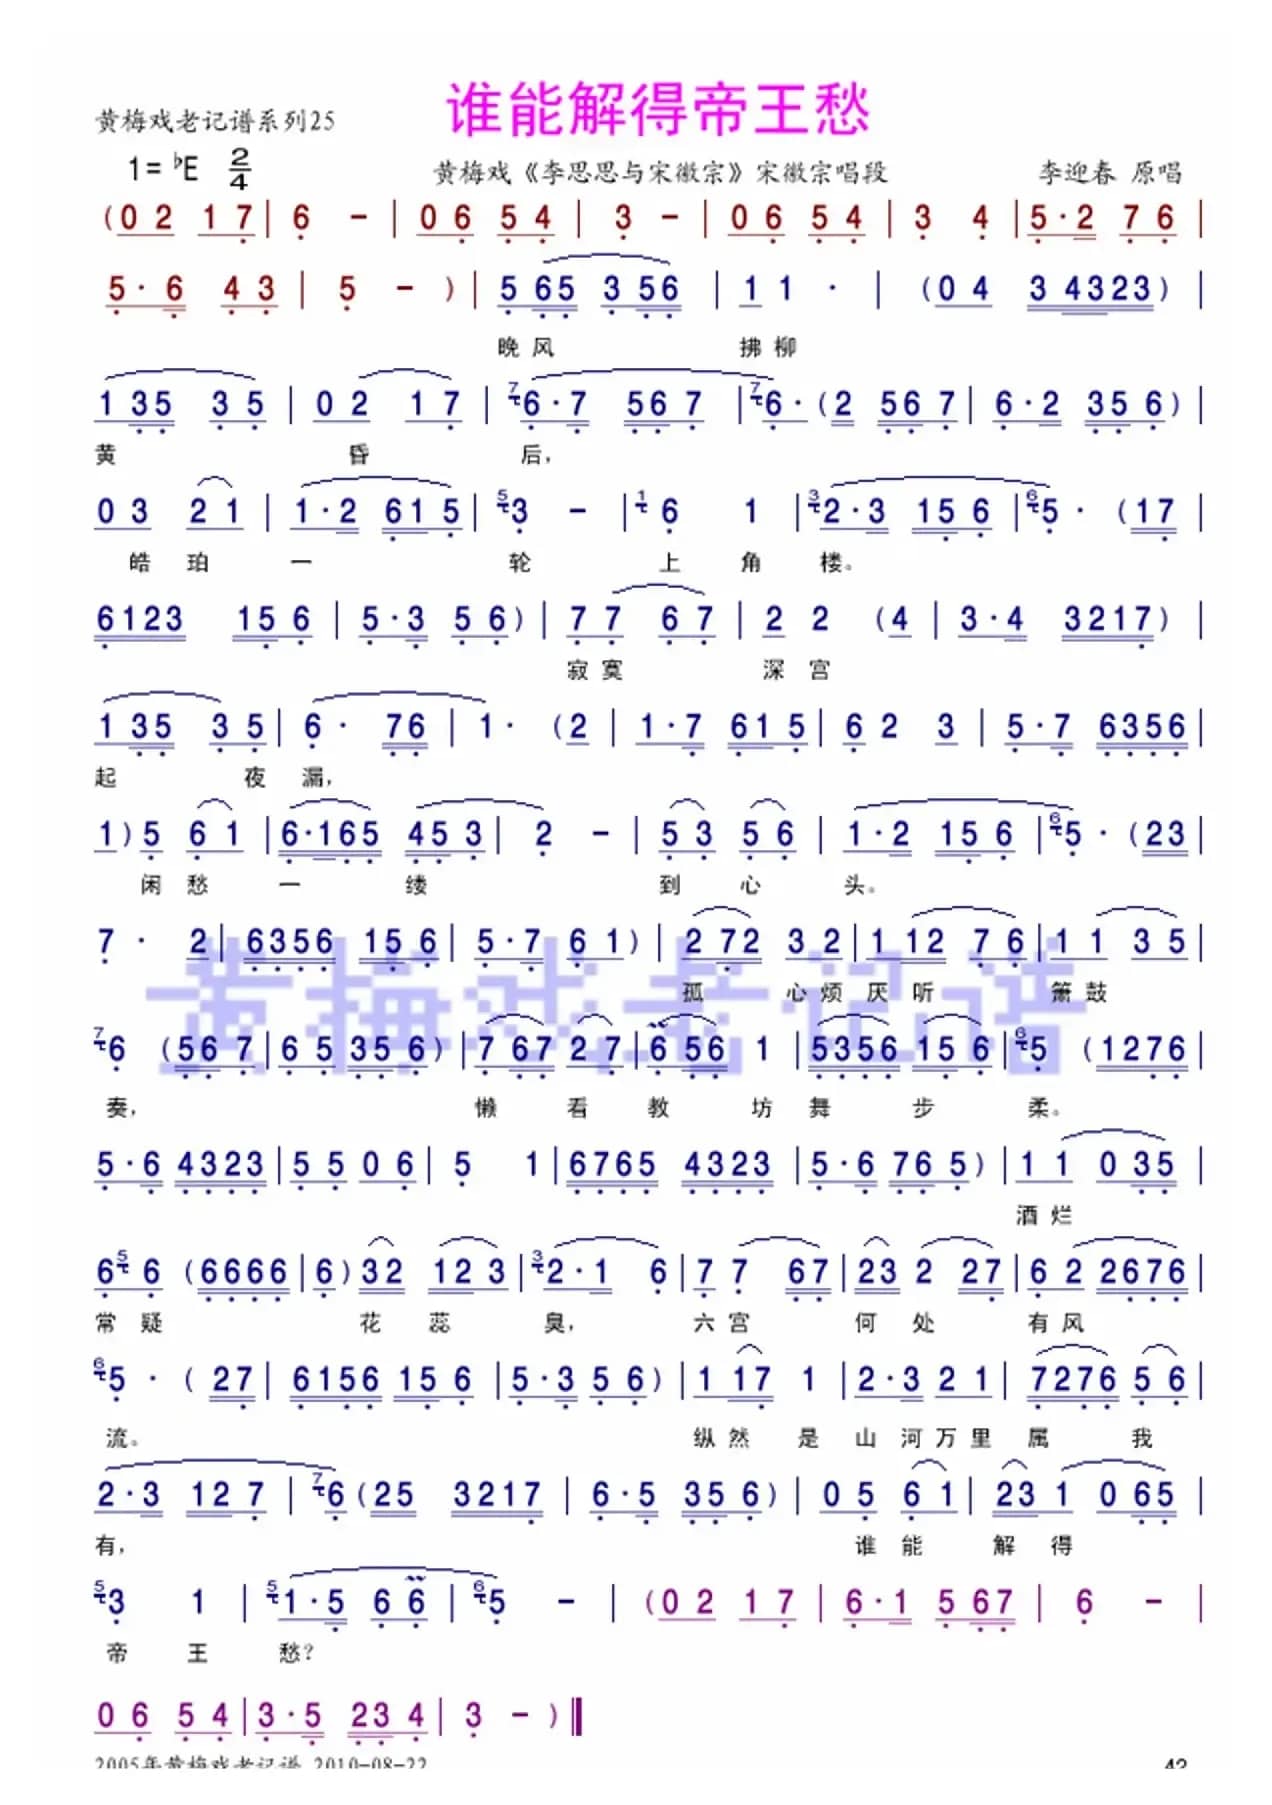 谁能解得帝王愁
黄梅戏老记谱系列25
1=♭E 2/4 黄梅戏《李思思与宋徽宗》宋徽宗唱段 李迎春 原唱
(0 2 1 7 | 6 - | 0 6 5 4 | 3 - | 0 6 5 4 | 3 4 | 5·2 7 6 |
5·6 4 3 | 5 - ) | 5 65 3 56 | 1 1 · | (0 4 3 4323) |
晚风 拂柳
1 35 3 5 | 0 2 1 7 | 7 6·7 56 7 | 7 6·(2 56 7 | 6·2 35 6) |
黄 昏 后,
0 3 2 1 | 1·2 61 5 | 5 3 - | 1 6 1 | 3 2·3 15 6 | 6 5· (17 |
皓 珀 一 轮 上 角 楼。
6123 15 6 | 5·3 5 6) | 7 7 6 7 | 2 2 (4 | 3·4 3217) |
寂寞 深宫
1 35 3 5 | 6· 76 | 1· (2 | 1·7 61 5 | 6 2 3 | 5·7 6356 |
起 夜 漏,
1) 5 6 1 | 6·165 45 3 | 2 - | 5 3 5 6 | 1·2 15 6 | 6 5·(23 |
闲 愁 一 缕 到 心 头。
7· 2 | 6356 15 6 | 5·7 6 1) | 2 72 3 2 | 1 12 7 6 | 1 1 3 5 |
黄梅戏老记谱
孤 心烦厌听 箫鼓
7 6 (56 7 | 6 5 35 6) | 7 67 2 7 | 6 56 1 | 5356 15 6 | 6 5 (1276 |
奏, 懒 看 教 坊 舞 步 柔。
5·6 4323 | 5 5 0 6 | 5 1 | 6765 4323 | 5·6 76 5) | 1 1 0 35 |
酒烂
6 5 6 (6666 | 6) 32 12 3 | 3 2·1 6 | 7 7 67 | 23 2 27 | 6 2 2676 |
常疑 花 蕊 臭, 六宫 何 处 有风
6 5 · ( 27 | 6156 15 6 | 5·3 5 6) | 1 17 1 | 2·3 2 1 | 7276 5 6 |
流。 纵然 是 山 河万里 属 我
2·3 12 7 | 7 6 (25 3217 | 6·5 35 6) | 0 5 6 1 | 23 1 0 65 |
有, 谁 能 解 得
5 3 1 | 5 1·5 6 6 | 6 5 - | (0 2 1 7 | 6·1 5 67 | 6 - |
帝 王 愁?
0 6 5 4 | 3·5 23 4 | 3 - ) ‖
2005年黄梅戏老记谱 2010-08-22 42